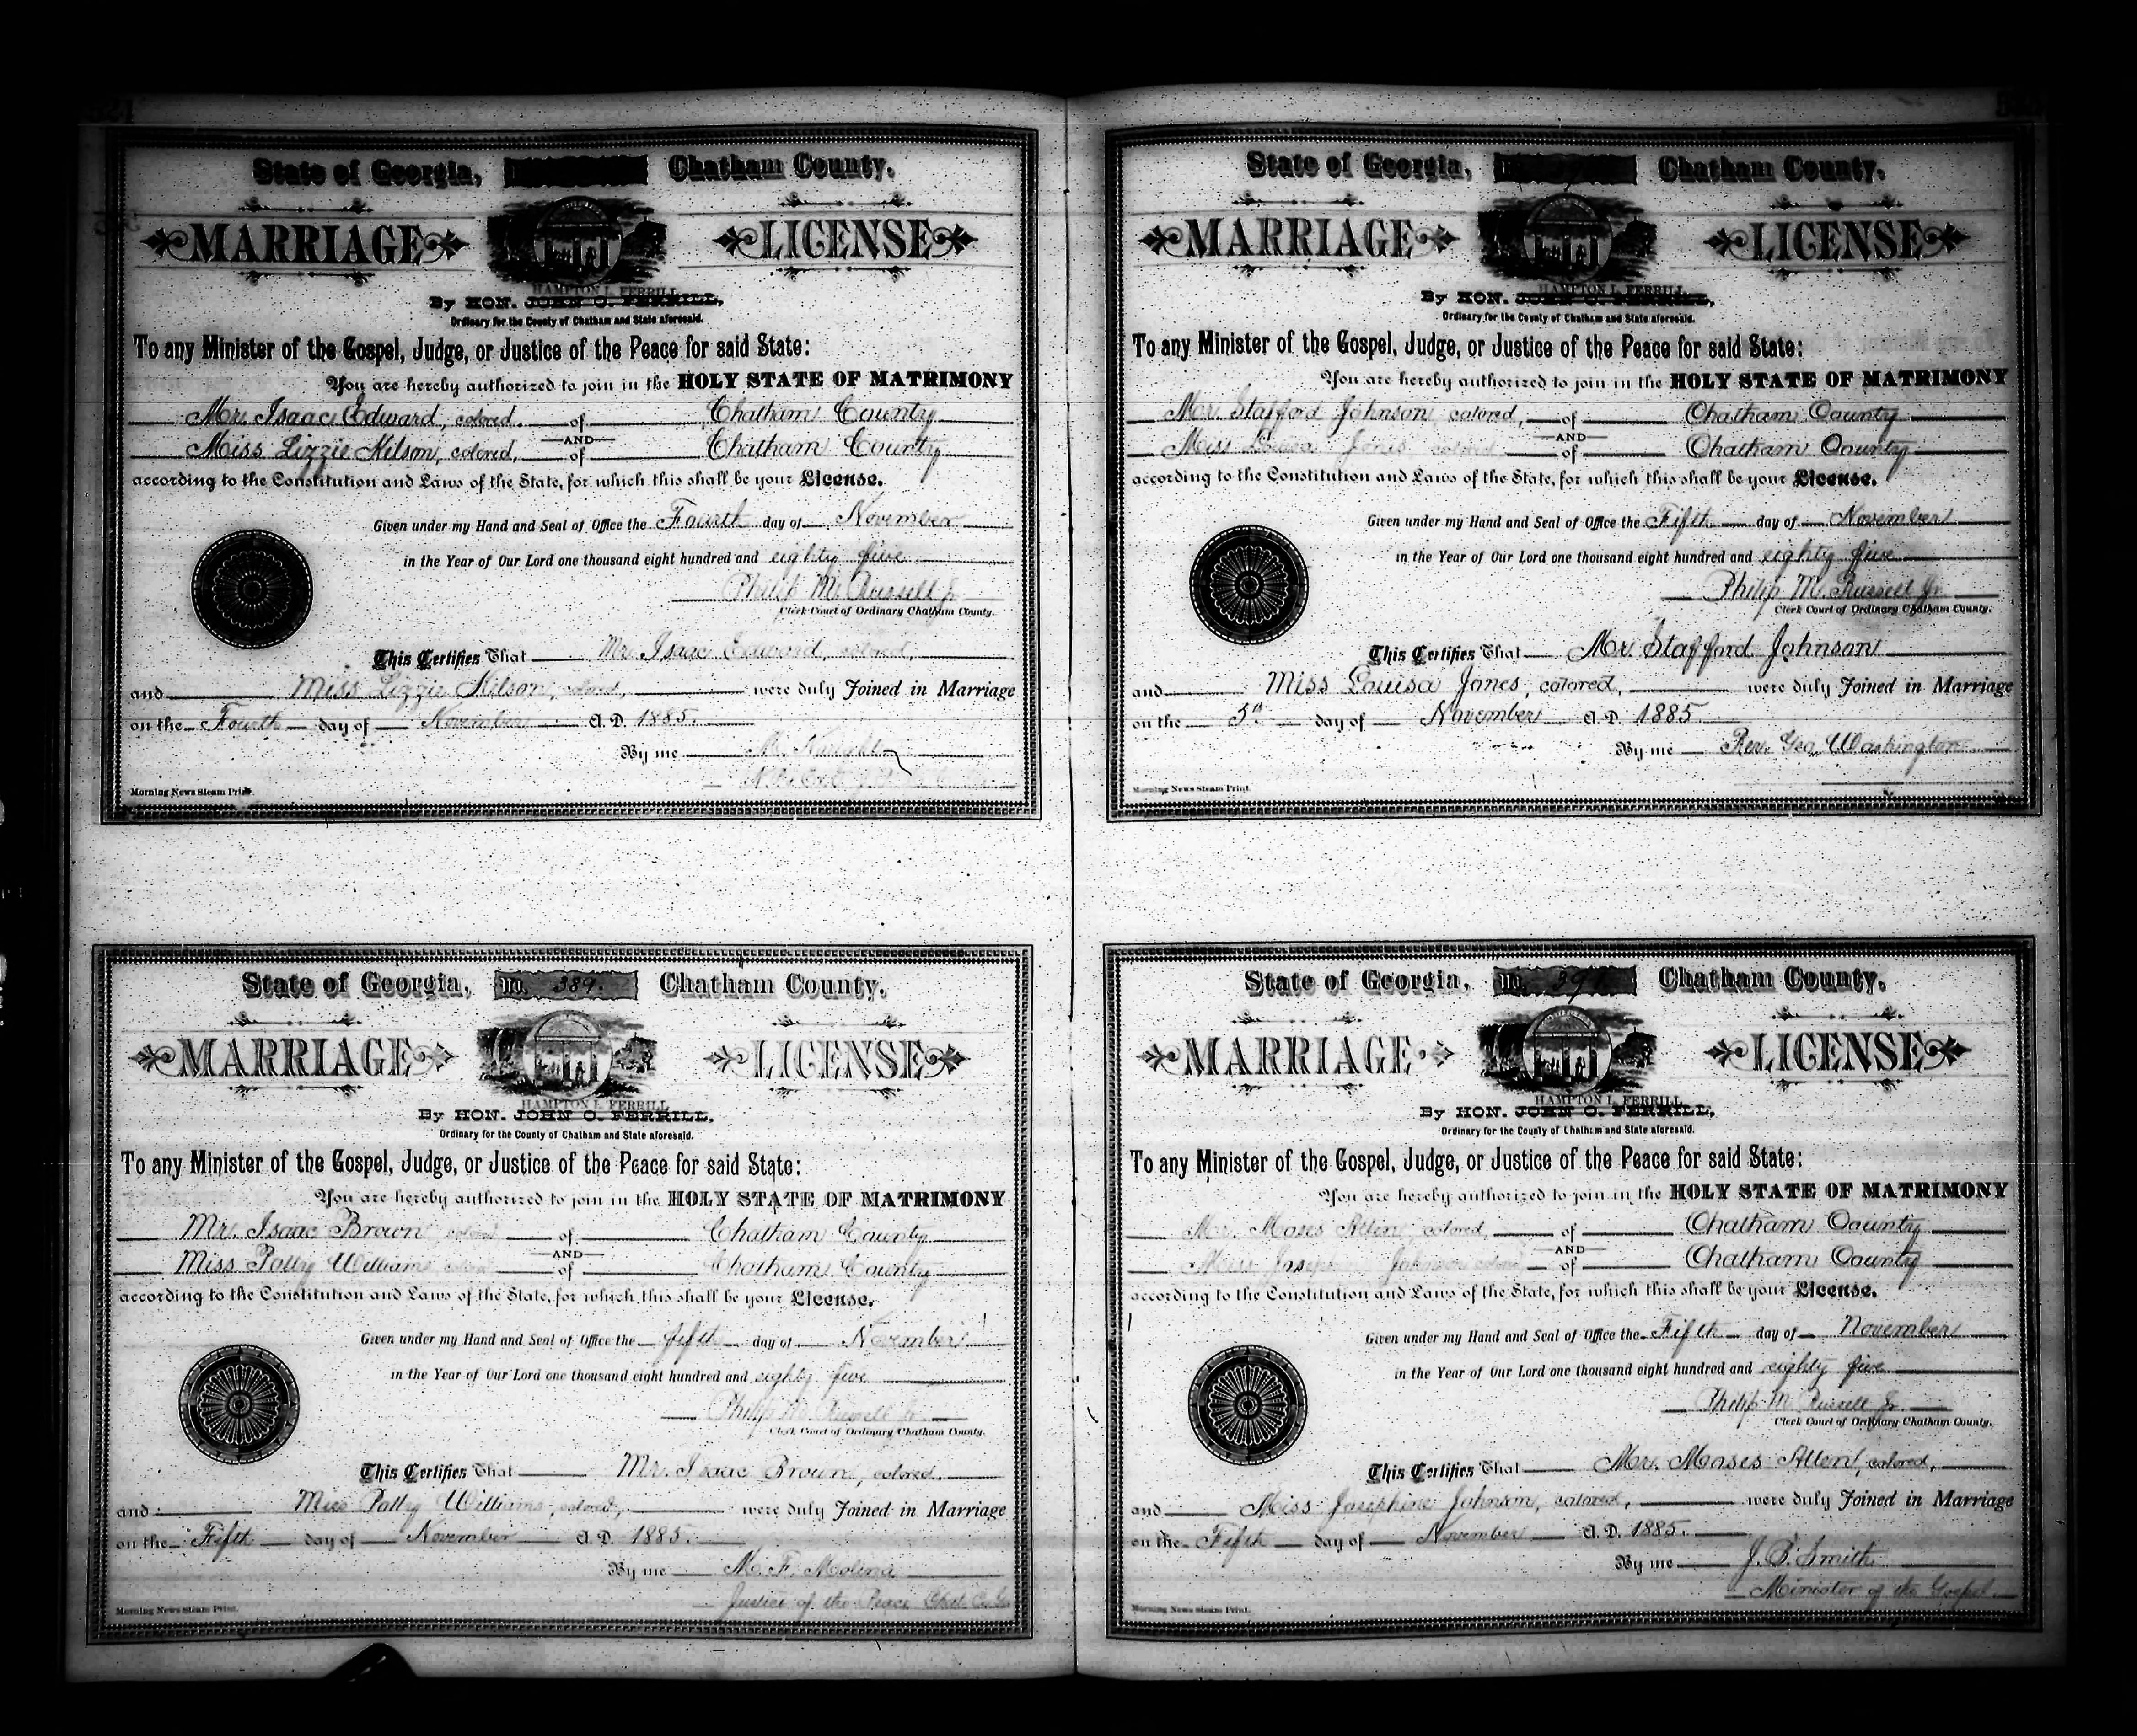 State of Georgia, Chatham County.
MARRIAGE LICENSE
HAMPTON L. FERRILL
By HON. JOHN O. FERRILL,
Ordinary for the County of Chatham and State aforesaid.
To any Minister of the Gospel, Judge, or Justice of the Peace for said State:
You are hereby authorized to join in the HOLY STATE OF MATRIMONY
Mr. Isaac Edward, colored, of Chatham County
AND
Miss Lizzie Kilson, colored, of Chatham County
according to the Constitution and Laws of the State, for which this shall be your License.
Given under my Hand and Seal of Office the Fourth day of November
in the Year of Our Lord one thousand eight hundred and eighty five
Philip M. Russell Jr
Clerk Court of Ordinary Chatham County.
This Certifies That Mr. Isaac Edward, colored,
and Miss Lizzie Kilson, colored, were duly Joined in Marriage
on the Fourth day of November A. D. 1885.
By me
Morning News Steam Print.
State of Georgia, No. 389. Chatham County.
MARRIAGE LICENSE
HAMPTON L. FERRILL
By HON. JOHN O. FERRILL,
Ordinary for the County of Chatham and State aforesaid.
To any Minister of the Gospel, Judge, or Justice of the Peace for said State:
You are hereby authorized to join in the HOLY STATE OF MATRIMONY
Mr. Isaac Brown colored of Chatham County
AND
Miss Patty Williams of Chatham County
according to the Constitution and Laws of the State, for which this shall be your License.
Given under my Hand and Seal of Office the fifth day of November
in the Year of Our Lord one thousand eight hundred and eighty five
Philip M. Russell Jr.
Clerk Court of Ordinary Chatham County.
This Certifies That Mr. Isaac Brown, colored,
and Miss Patty Williams, colored, were duly Joined in Marriage
on the Fifth day of November A. D. 1885.
By me M. F. Molina
Justice of the Peace Chat. Co. Ga
Morning News Steam Print.
State of Georgia, Chatham County.
MARRIAGE LICENSE
HAMPTON L. FERRILL
By HON. JOHN O. FERRILL,
Ordinary for the County of Chatham and State aforesaid.
To any Minister of the Gospel, Judge, or Justice of the Peace for said State:
You are hereby authorized to join in the HOLY STATE OF MATRIMONY
Mr. Stafford Johnson colored, of Chatham County
AND
Miss Louisa Jones colored of Chatham County
according to the Constitution and Laws of the State, for which this shall be your License.
Given under my Hand and Seal of Office the Fifth day of November
in the Year of Our Lord one thousand eight hundred and eighty five
Philip M. Russell Jr.
Clerk Court of Ordinary Chatham County.
This Certifies That Mr. Stafford Johnson
and Miss Louisa Jones, colored, were duly Joined in Marriage
on the 5th day of November A. D. 1885.
By me Rev. Geo. Washington
Morning News Steam Print.
State of Georgia, No. Chatham County.
MARRIAGE LICENSE
HAMPTON L. FERRILL
By HON. JOHN O. FERRILL,
Ordinary for the County of Chatham and State aforesaid.
To any Minister of the Gospel, Judge, or Justice of the Peace for said State:
You are hereby authorized to join in the HOLY STATE OF MATRIMONY
Mr. Moses Allen, colored, of Chatham County
AND
Miss Johnson colored of Chatham County
according to the Constitution and Laws of the State, for which this shall be your License.
Given under my Hand and Seal of Office the Fifth day of November
in the Year of Our Lord one thousand eight hundred and eighty five
Philip M. Russell Jr.
Clerk Court of Ordinary Chatham County.
This Certifies That Mr. Moses Allen, colored,
and Miss Josephine Johnson, colored, were duly Joined in Marriage
on the Fifth day of November A. D. 1885.
By me J. B. Smith
Minister of the Gospel
Morning News Steam Print.